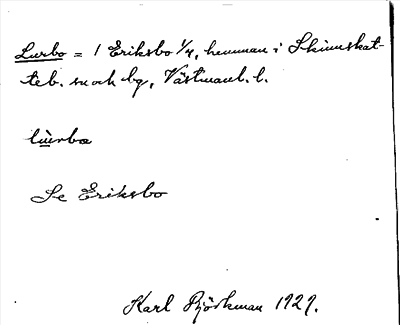 Lurbo = 1 Eriksbo 1/4, hemman i Skinnskat-
teb. sn och bg, Västmanl. l.
lùrba
Se Eriksbo
Karl Björkman 1929.